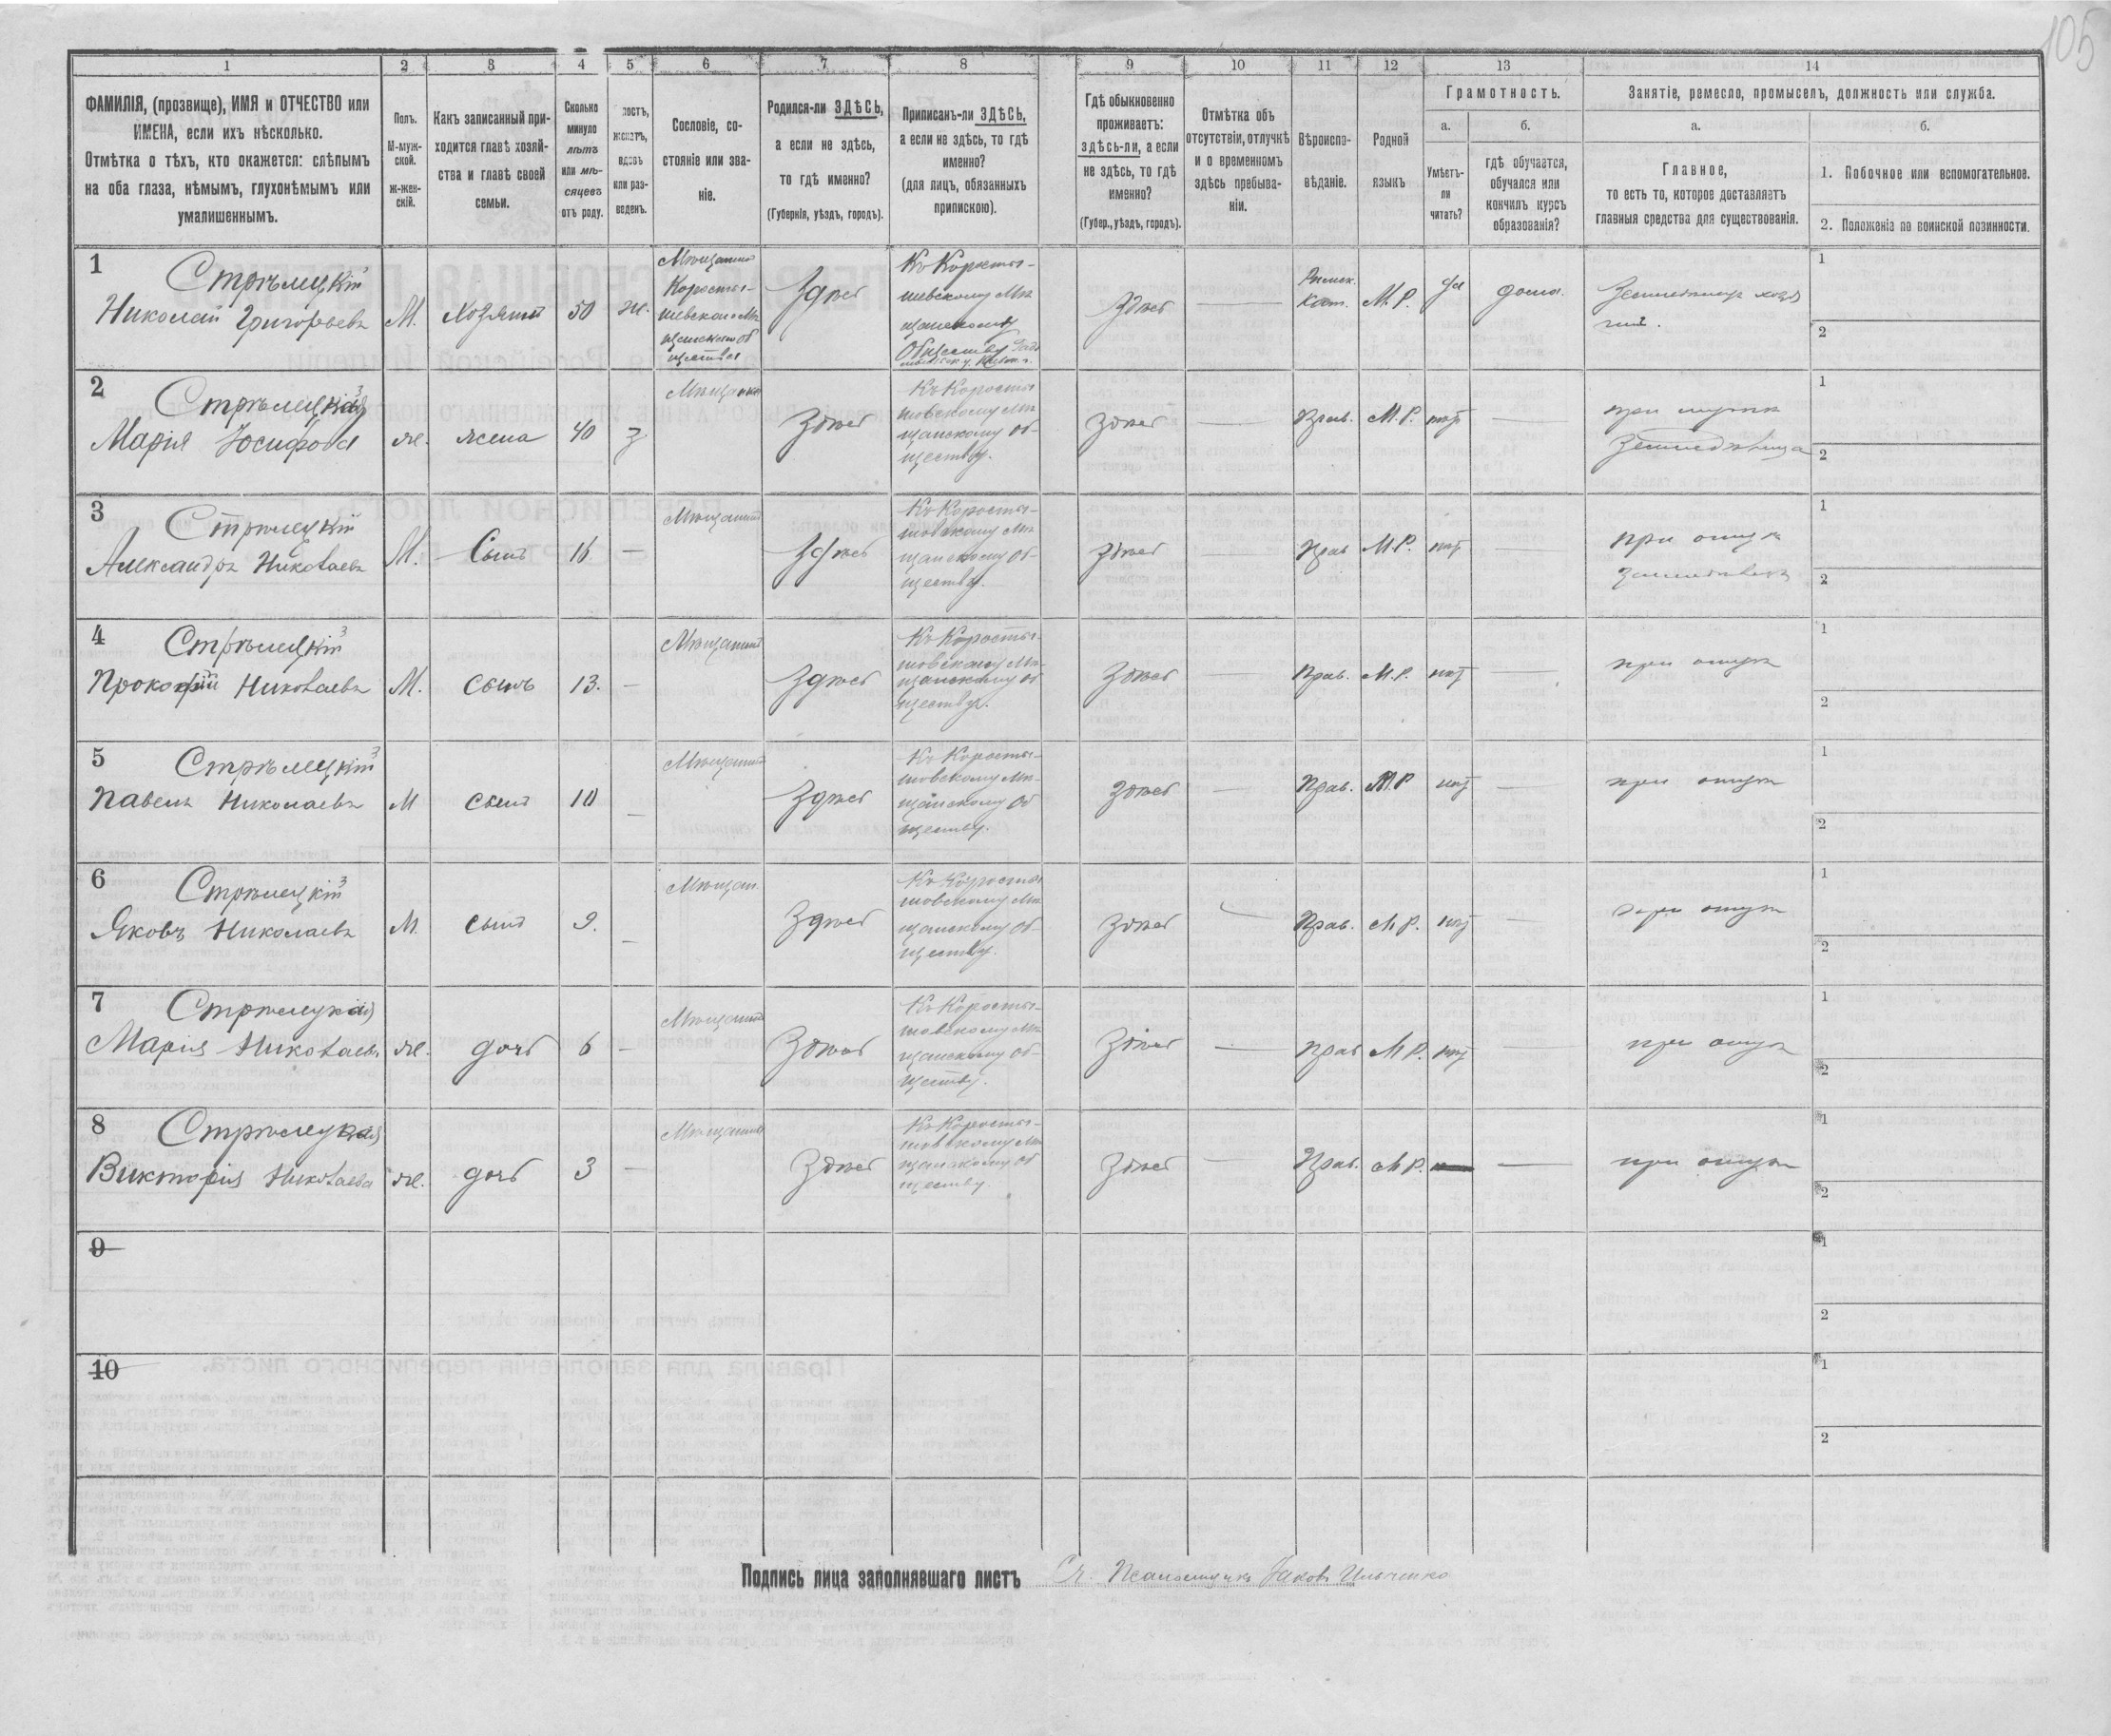 105
1 2 3 4 5 6 7 8 9 10 11 12 13 14
ФАМИЛІЯ, (прозвище), ИМЯ и ОТЧЕСТВО или
ИМЕНА, если ихъ нѣсколько.
Отмѣтка о тѣхъ, кто окажется: слѣпымъ
на оба глаза, нѣмымъ, глухонѣмымъ или
умалишеннымъ.
Полъ.
М-муж-
ской.
ж-жен-
скій.
Какъ записанный при-
ходится главѣ хозяй-
ства и главѣ своей
семьи.
Сколько
минуло
лѣтъ
или мѣ-
сяцевъ
отъ роду.
женатъ,
вдовъ
или раз-
веденъ.
Сословіе, со-
стояніе или зва-
ніе.
Родился-ли ЗДѢСЬ,
а если не здѣсь,
то гдѣ именно?
(Губернія, уѣздъ, городъ).
Приписанъ-ли ЗДѢСЬ,
а если не здѣсь, то гдѣ
именно?
(для лицъ, обязанныхъ
припискою).
Гдѣ обыкновенно
проживаетъ:
здѣсь-ли, а если
не здѣсь, то гдѣ
именно?
(Губер., уѣздъ, городъ).
Отмѣтка объ
отсутствіи, отлучкѣ
и о временномъ
здѣсь пребыва-
ніи.
Вѣроиспо-
вѣданіе.
Родной
языкъ
Грамотность.
а.
Умѣетъ-
ли
читать?
б.
гдѣ обучается,
обучался или
кончилъ курсъ
образованія?
Занятіе, ремесло, промыселъ, должность или служба.
а.
Главное,
то есть то, которое доставляетъ
главныя средства для существованія.
б.
1. Побочное или вспомогательное.
2. Положеніе по воинской повинности.
1
Стрѣлецкій
Николай Григорьевъ
М.
Хозяинъ
50
ж.
Мѣщанинъ
Коросты-
шевскаго Мѣ
щанскаго об
щества
Здѣсь
Къ Коросты-
шевскому Мѣ
щанскому
Обществу
Здѣсь
—
Римск.
Кат.
М. Р.
да
дома.
Земледѣлецъ хозя
инъ.
1
2
2
Стрѣлецкая
Марія Іосифова
ж.
жена
40
З
Мѣщанка
Здѣсь
Къ Коросты
шовскому Мѣ
щанскому об-
ществу.
Здѣсь
—
Прав.
М. Р.
нѣт
—
при мужѣ
Земледѣлица
1
2
3
Стрѣлецкій
Александръ Николаевъ
М.
Сынъ
16
—
Мѣщанинъ
Здѣсь
Къ Коросты-
шовскому Мѣ
щанскому об-
ществу.
Здѣсь
—
Прав
М. Р.
нѣт
—
при отцѣ
земледѣлецъ
1
2
4
Стрѣлецкій
Прокофій Николаевъ
М.
сынъ
13.
—
Мѣщанинъ
Здѣсь
Къ Коросты-
шовскому Мѣ-
щанскому об
ществу.
Здѣсь
—
Прав.
М. Р.
нѣт
—
при отцѣ
1
2
5
Стрѣлецкій
Павелъ Николаевъ
М
сынъ
10
—
Мѣщанинъ
Здѣсь
Къ Коросты-
шовскому Мѣ-
щанскому об
ществу.
Здѣсь
—
Прав.
М. Р
нѣт
—
при отцѣ
1
2
6
Стрѣлецкій
Яковъ Николаевъ
М.
сынъ
9.
—
Мѣщан.
Здѣсь
Къ Коросты
шовскому Мѣ
щанскому об-
ществу.
Здѣсь
—
Прав.
М. Р.
нѣт
—
при отцѣ
1
2
7
Стрѣлецкая
Марія Николаева
ж.
дочь
6
—
Мѣщанинъ
Здѣсь
Къ Коросты-
шовскому Мѣ
щанскому об-
ществу.
Здѣсь
—
Прав
М. Р.
нѣт
—
при отцѣ
1
2
8
Стрѣлецкая
Викторія Николаева
ж.
дочь
3
—
Мѣщанинъ
Здѣсь
Къ Коросты-
шовскому Мѣ
щанскому об
ществу.
Здѣсь
—
Прав.
М. Р.
—
при отцѣ
1
2
9
1
2
10
1
2
Подпись лица заполнявшаго листъ Яковъ Ильченко